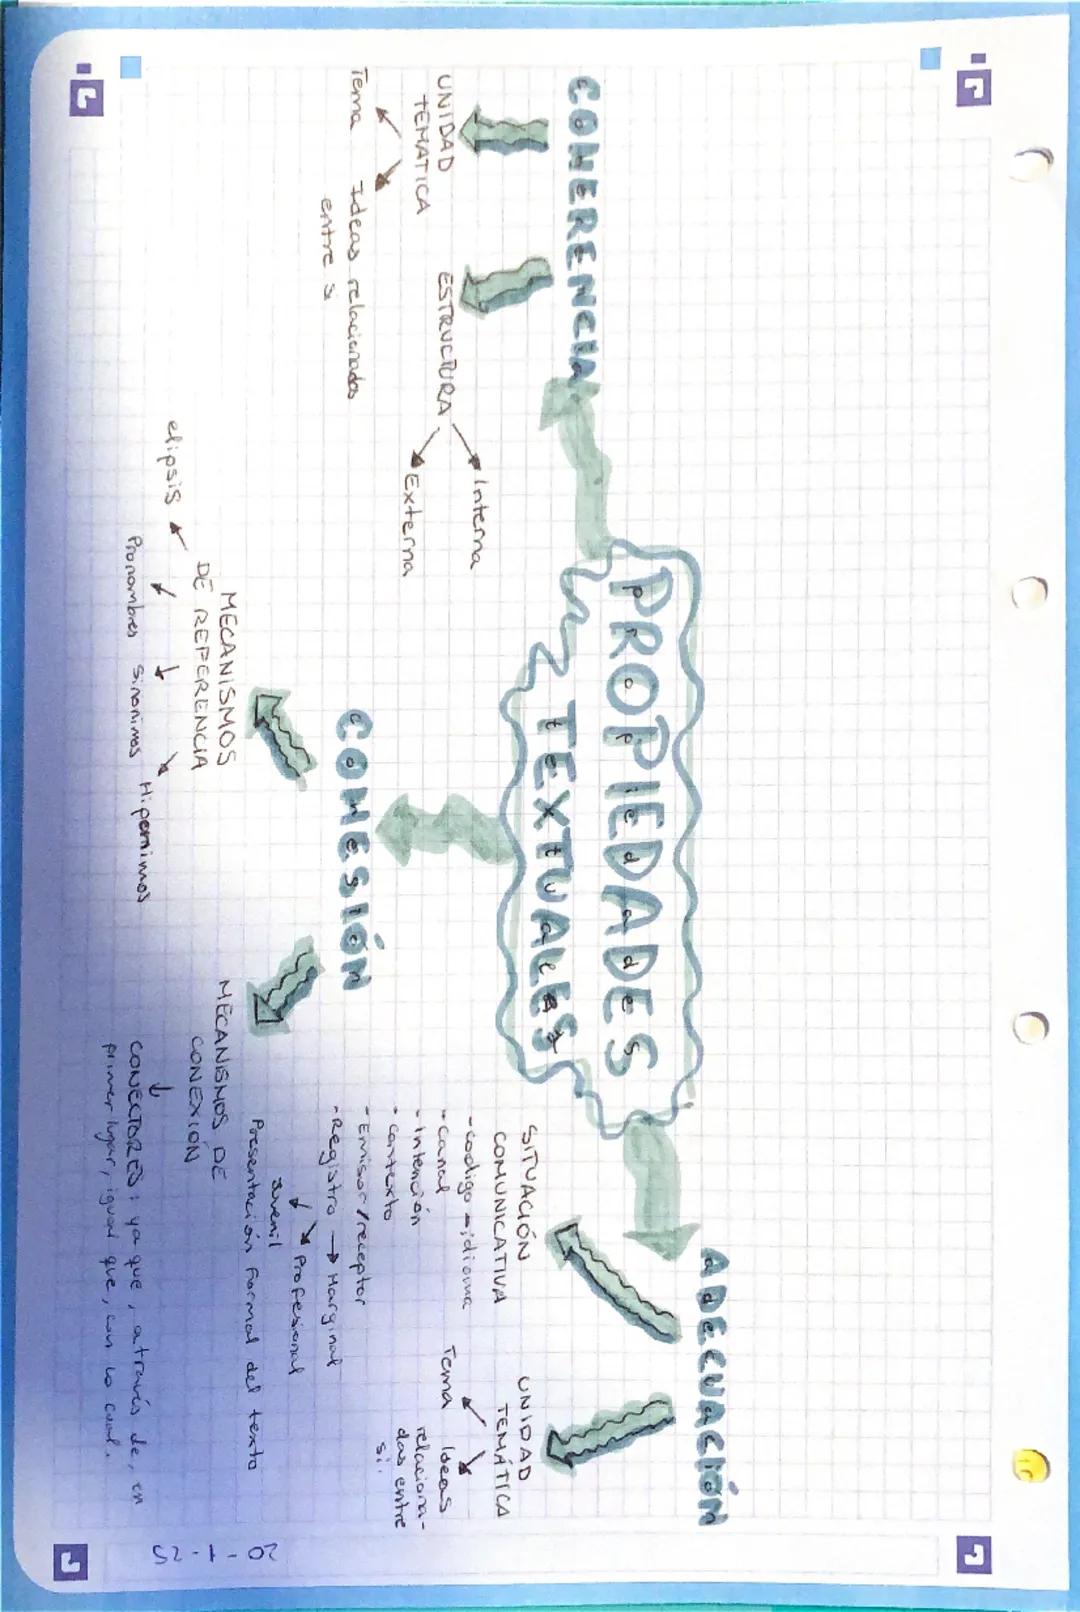 PROPIEDADES
TEXTUALES
COHERENCIA
UNIDAD
TEMÁTICA
Tema
Ideas relacionadas
entre si
ESTRUCTURA
Interna
Externa
COHESIÓN
MECANISMOS
DE REFERENCIA
elipsis
Pronombres
Sinonimos
Hiperonimos
MECANISMOS DE
CONEXIÓN
CONECTORES: ya que, a través de, en
primer lugar, igual que, con lo cual.
ADECUACIÓN
SITUACIÓN
COMUNICATIVA
-codigo → idioma
-canal
-Intención
-contexto
-Emisor/receptor
-Registro → Marginal
Juvenil
Profesional
Presentación Formal del texto
UNIDAD
TEMÁTICA
Tema
Ideas
relaciona-
das entre
si.
20-1-25